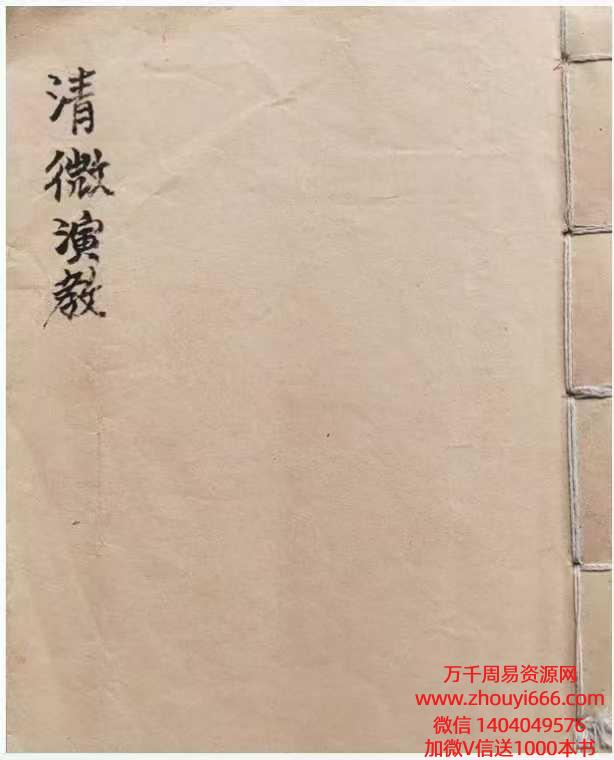 清微演教
万千周易资源网
www.zhouyi666.com
微信 1404049576
加微V信送1000本书